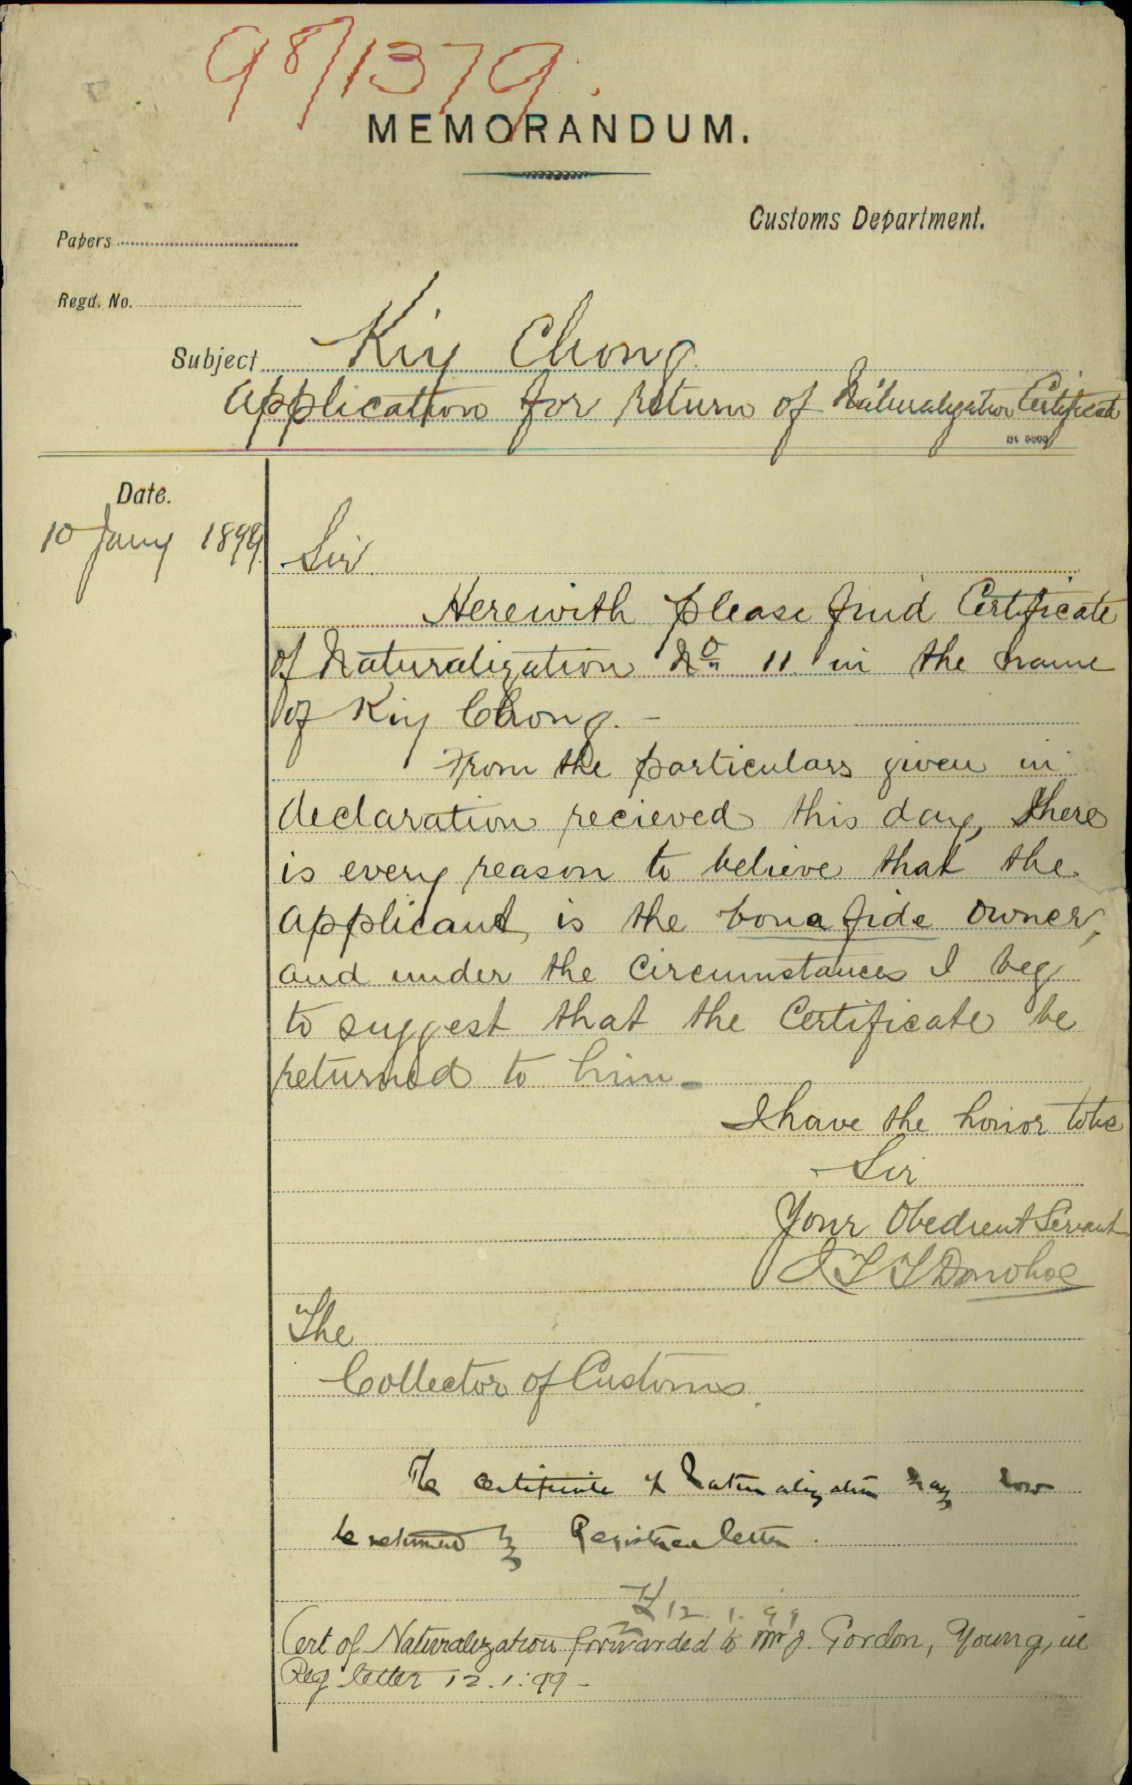 98/1379.
MEMORANDUM.
Customs Department.
Papers
Regd. No.
Subject Kiy Chong
Application for return of Naturalization Certificate
Date.
10 Jany 1899
Sir
Herewith please find Certificate
of Naturalization No 11 in the name
of Kiy Chong. -
From the particulars given in
declaration recieved this day, there
is every reason to believe that the
applicant, is the bona fide owner,
and under the circumstances I beg
to suggest that the Certificate be
returned to him -
I have the honor to be
Sir
Your Obedient Servant
J T T Donohoe
The
Collector of Customs.
The Certificate of Naturalization may now
be returned by Registered letter.
12.1.99
Cert of Naturalization forwarded to Mr J. Gordon, Young, in
Reg letter 12.1.99 -